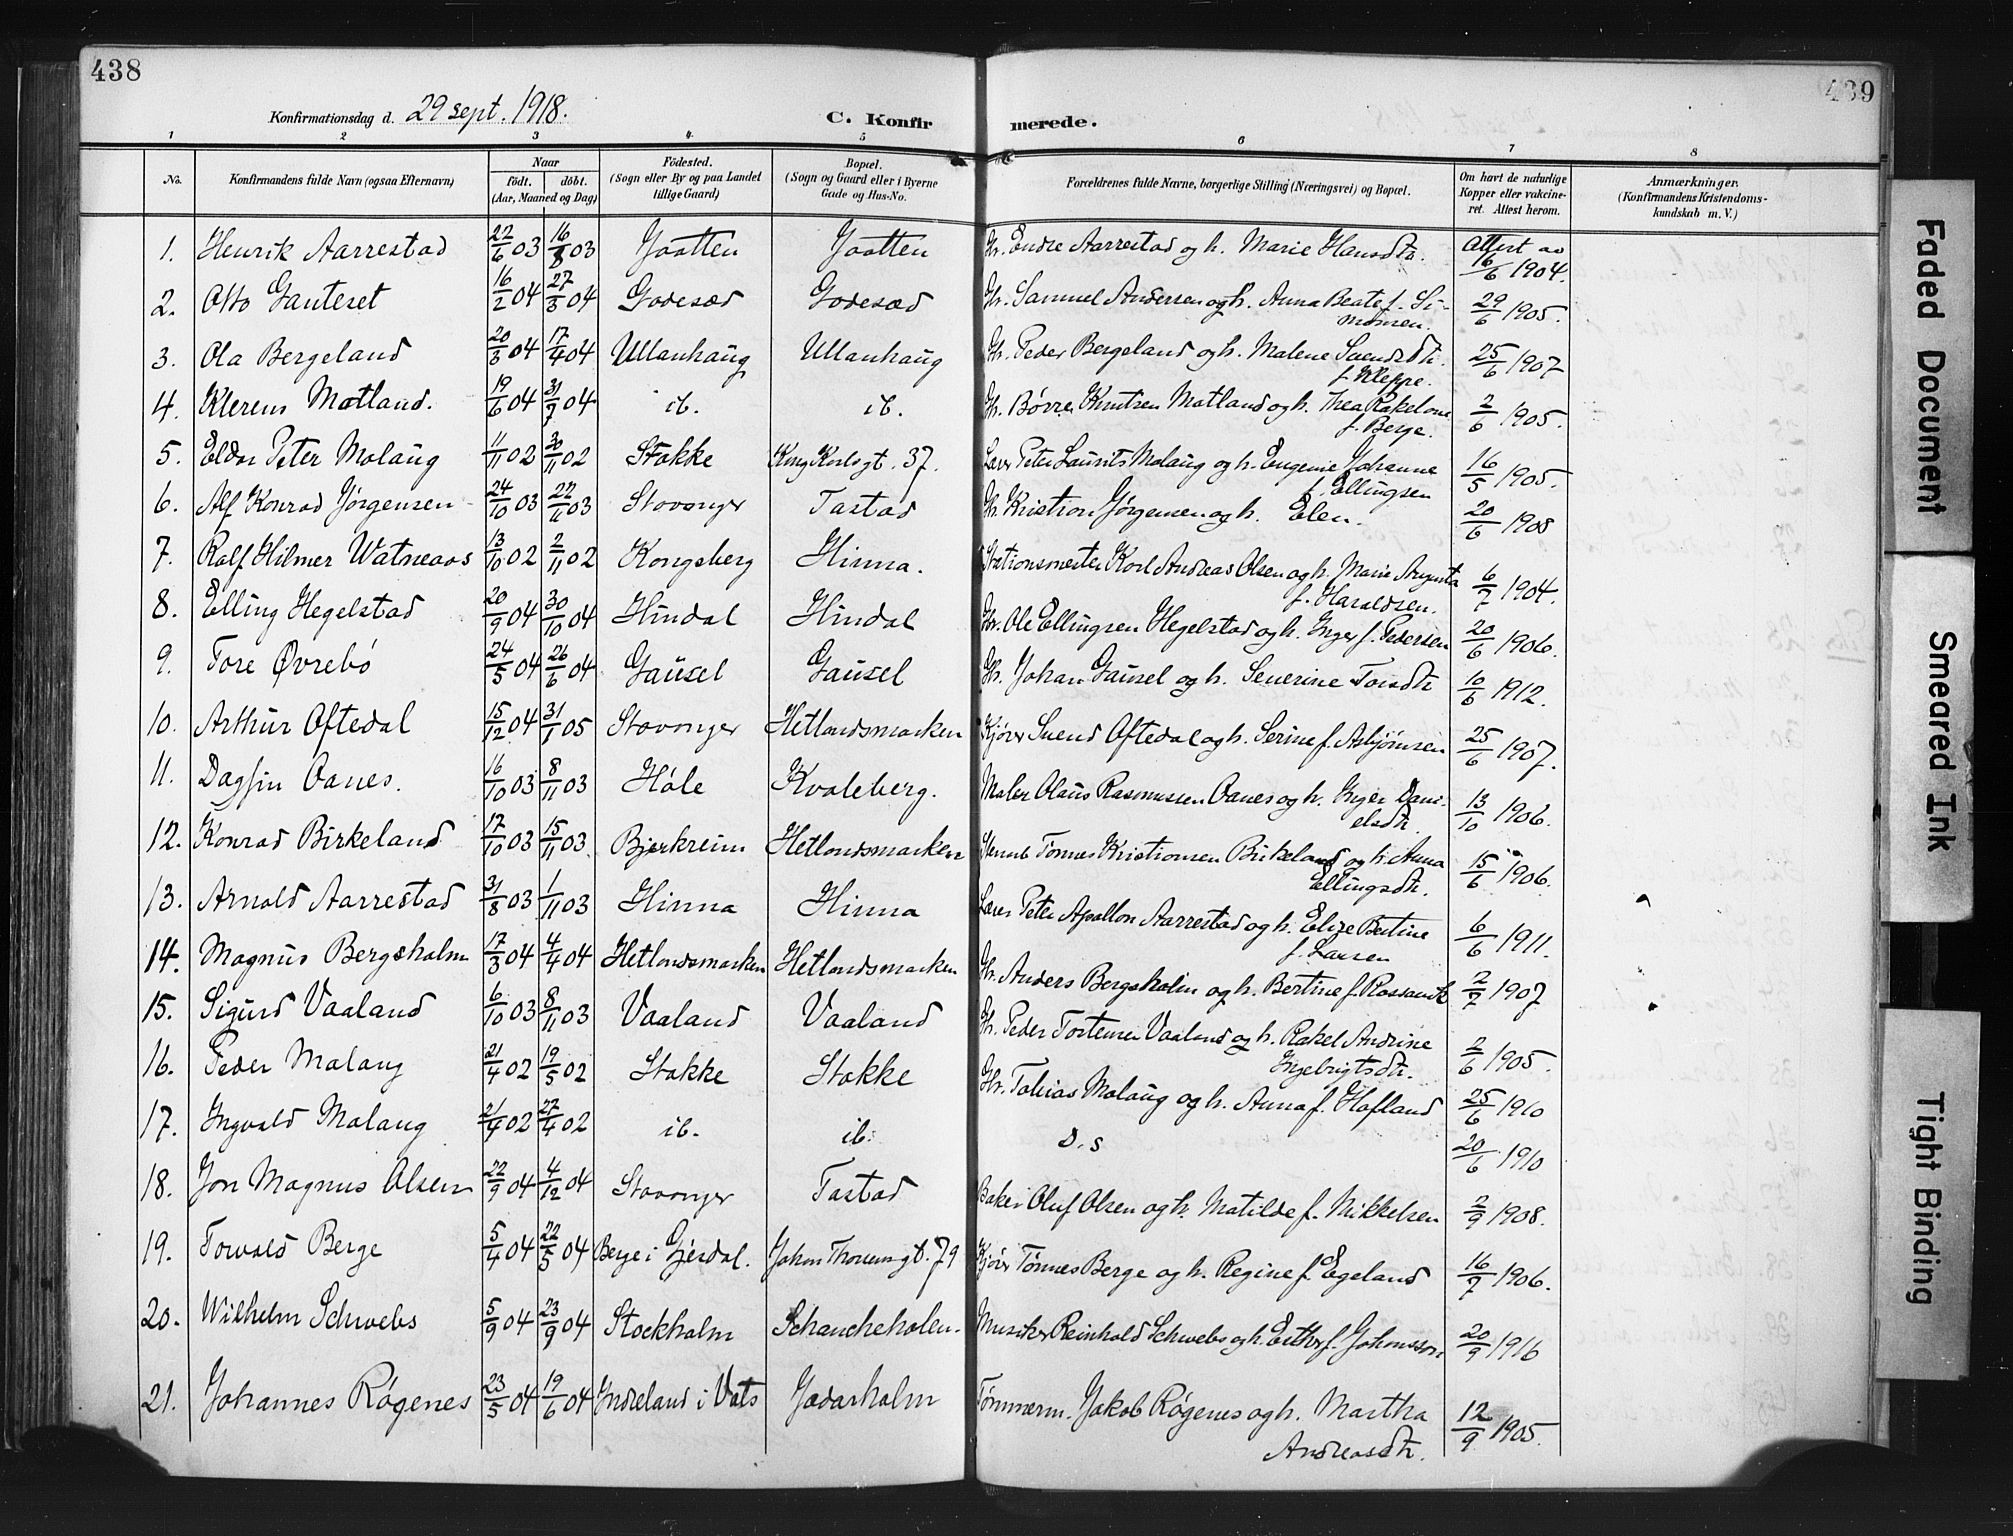 438
439
Konfirmationsdag d. 29 sept. 1918.
C. Konfirmerede.
1 2 3 4. 5 6 7 8
No.
Konfirmandens fulde Navn (ogsaa Efternavn)
Naar
født. døbt.
(Aar, Maaned og Dag)
Fødested.
(Sogn eller By og paa Landet
tillige Gaard)
Bopæl.
(Sogn og Gaard eller i Byerne
Gade og Hus-No.
Forældrenes fulde Navne, borgerlige Stilling (Næringsvei) og Bopæl.
Om havt de naturlige
Kopper eller vakcine-
ret. Attest herom.
Anmærkninger.
(Konfirmandens Kristendoms-
kundskab m. V.)
1. Henrik Aarrestad 22/6 03 16/8 03 Jaatten Jaatten Gbr. Endre Aarrestad og h. Marie Hansdtr. Attest av 16/6 1904.
2. Otto Gauteset 16/2 04 27/3 04 Godesæd Godesæd Gbr. Samuel Andersen og h. Anna Beate f. Si-
monsen. 29/6 1905.
3. Ola Bergeland 20/3 04 17/4 04 Ullanhaug Ullanhaug Gbr. Peder Bergeland og h. Malene Svendsdtr.
f. Kleppe. 25/6 1907
4. Klerens Matland. 19/6 04 31/7 04 ib. ib. Gbr. Børre Knutsen Matland og h. Thea Rakeline
f. Berge. 2/6 1905.
5. Eldar Peter Molaug 11/11 02 30/11 02 Stokke Kong Karlsgt. 37. Laver Peter Laurits Molaug og h. Eugenie Johanne
f. Ellingsen 16/5 1905.
6. Alf Konrad Jørgensen 24/10 03 22/11 03 Stavanger Tastad Gbr. Kristian Jørgensen og h. Elen. 20/6 1908
7. Ralf Hilmer Watneaas 13/10 02 2/11 02 Kongsberg Hinna. Stationsmester Karl Andreas Olsen og h. Marie Augusta
f. Haraldsen. 6/7 1904.
8. Elling Hegelstad 20/9 04 30/10 04 Hindal Hindal Gbr. Ole Ellingsen Hegelstad og h. Inger f. Pedersen 20/6 1906.
9. Tore Øvrebø 24/5 04 26/6 04 Gausel Gausel Gbr. Johan Gausel og h. Severine Torsdtr 10/6 1912.
10. Arthur Oftedal 15/12 04 31/1 05 Stavanger Hetlandsmarken Kjører Svend Oftedal og h. Serine f. Asbjørnsen 25/6 1907.
11. Dagfin Oanes. 16/10 03 8/11 03 Høle Kvaleberg. Maler Olaus Rasmussen Oanes og h. Inger Dani-
elsdtr. 13/10 1906.
12. Konrad Birkeland 17/10 03 15/11 03 Bjerkreim Hetlandsmarken Tønnes Kristiansen Birkeland og h. Anna
Ellingsdtr. 15/6 1906.
13. Arnold Aarrestad 31/8 03 1/11 03 Hinna Hinna Laver Peter Apollon Aarrestad og h. Elise Bertine
f. Larsen 6/6 1911.
14. Magnus Bergsholm 17/3 04 4/4 04 Hetlandsmarken Hetlandsmarken Gbr. Anders Bergsholm og h. Bertine f. 2/7 1907
15. Sigurd Vaaland 6/10 03 8/11 03 Vaaland Vaaland Gbr. Peder Tostensen Vaaland og h. Rakel Andrine
Ingebrigtsdtr. 2/6 1905.
16. Peder Malaug 21/4 02 19/5 02 Stokke Stokke Gbr. Tobias Molaug og h. Anna f. Hafland 25/6 1910
17. Ingvald Malaug 21/4 02 27/4 02 ib. ib. D. s 20/6 1910
18. Jon Magnus Olsen 22/9 04 4/12 04 Stavanger Tastad Baker Oluf Olsen og h. Matilde f. Mikkelsen 2/9 1908.
19. Torvald Berge 5/4 04 22/5 04 Berge i Gjesdal. Johan Thorsensgt. 79 Kjører Tønnes Berge og h. Regine f. Egeland 16/7 1906.
20. Wilhelm Schwebs 5/9 04 23/9 04 Stockholm Schancheholen. Musiker Reinhold Schwebs og h. Esther f. Johansson 20/9 1916
21. Johannes Røgenes 23/5 04 19/6 04 Indreland i Vats Jadarholm Tømmerm. Jakob Røgenes og h. Martha
Andreasdtr. 12/9 1905.
Faded Document
Smeared Ink
Tight Binding